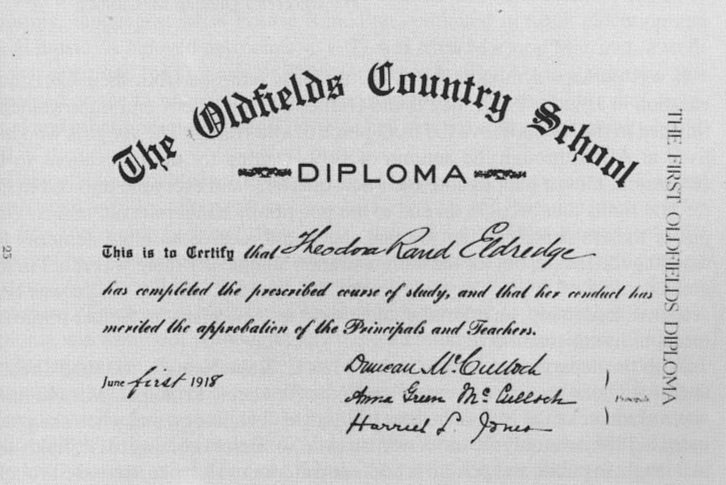 The Oldfields Country School
DIPLOMA
This is to Certify that Theodora Rand Eldredge
has completed the prescribed course of study, and that her conduct has
merited the approbation of the Principals and Teachers.
June first 1918
Duncan McCulloch
Anna Green McCulloch
Harriet L. Jones
Principals
THE FIRST OLDFIELDS DIPLOMA
23